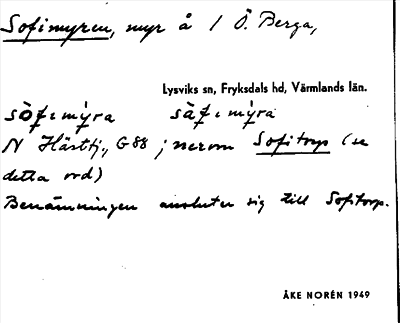 Sofimyren, myr å / Ö. Berga,
Lysviks sn, Fryksdals hd, Värmlands län.
N Hästtj., G 88; nerom Sofitorp (se
detta ord)
Benämningen ansluter sig till Sofitorp.
ÅKE NORÉN 1949